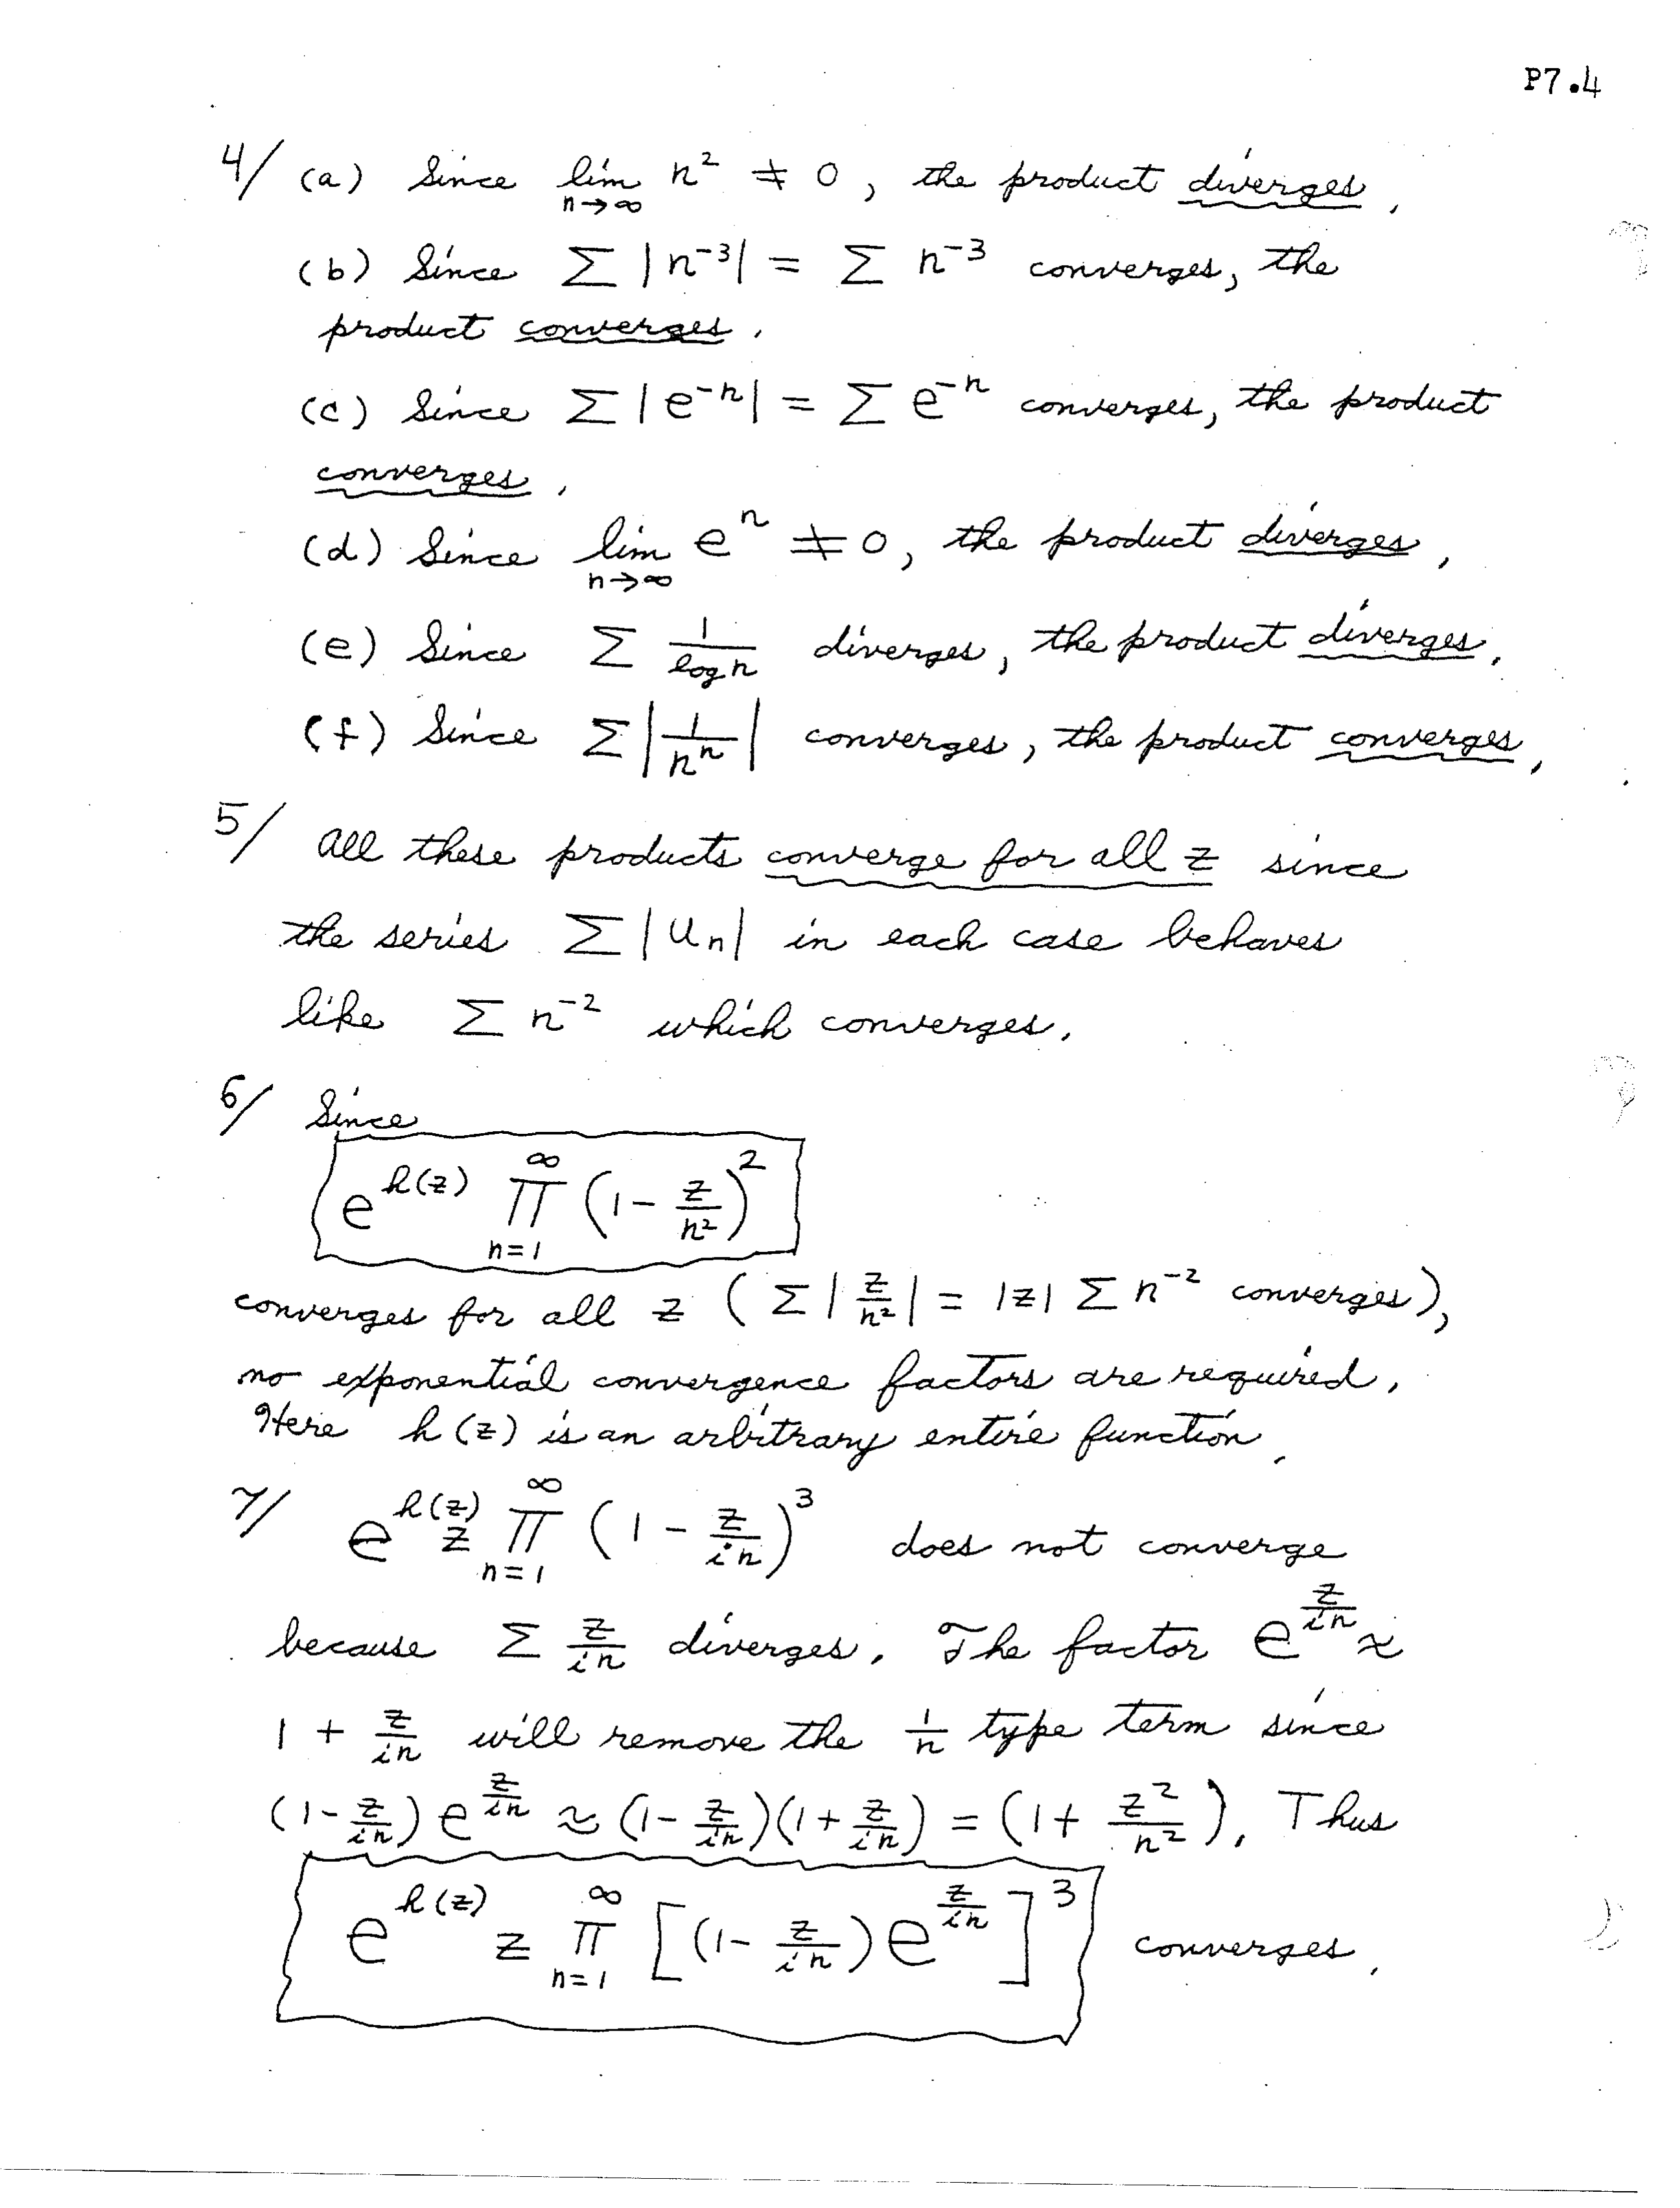 P7.4
4/ (a) Since lim n→∞ n² ≠ 0, the product diverges.
(b) Since Σ |n⁻³| = Σ n⁻³ converges, the
product converges.
(c) Since Σ |e⁻ⁿ| = Σ e⁻ⁿ converges, the product
converges.
(d) Since lim n→∞ eⁿ ≠ 0, the product diverges.
(e) Since Σ 1/log n diverges, the product diverges.
(f) Since Σ |1/nⁿ| converges, the product converges.
5/ All these products converge for all z since
the series Σ |uₙ| in each case behaves
like Σ n⁻² which converges.
6/ Since
e^{h(z)} ∏_{n=1}^{∞} (1 - z/n²)²
converges for all z (Σ |z/n²| = |z| Σ n⁻² converges),
no exponential convergence factors are required.
Here h(z) is an arbitrary entire function.
7/ e^{h(z)} z ∏_{n=1}^{∞} (1 - z/in)³ does not converge
because Σ z/in diverges. The factor e^{z/in} ≈
1 + z/in will remove the 1/n type term since
(1 - z/in) e^{z/in} ≈ (1 - z/in)(1 + z/in) = (1 + z²/n²). Thus
e^{h(z)} z ∏_{n=1}^{∞} [(1 - z/in) e^{z/in}]³ converges.